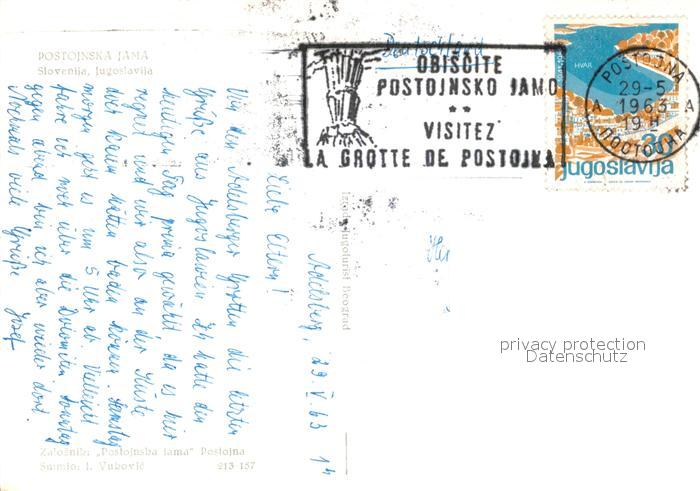 POSTOJNSKA JAMA
Slovenija, Jugoslavija
Deutschland
OBIŠČITE
POSTOJNSKO JAMO
**
VISITEZ
LA GROTTE DE POSTOJNA
HVAR
30
jugoslavija
POSTOJNA
29-5
A 1963 A
19 H
POSTOJNA
Adelsberg, 29.V.63 14
Liebe Eltern!
Von den Adelsberger Grotten die letzten
Grüße aus Jugoslawien. Ich hatte den
heutigen Tag prima gewählt da es hier
regnet und wir also an der Küste
auch kaum hätten baden können. Samstag
morgen geht es um 5 Uhr ab. Vielleicht
fahre ich noch über die Dolomiten. Sonntag
gegen abend bin ich aber wieder dort.
Nochmals viele Grüße Josef
Izdanje Jugoturist Beograd
privacy protection
Datenschutz
Založnik: „Postojnska jama" Postojna
Snimio: I. Vubović 213 157